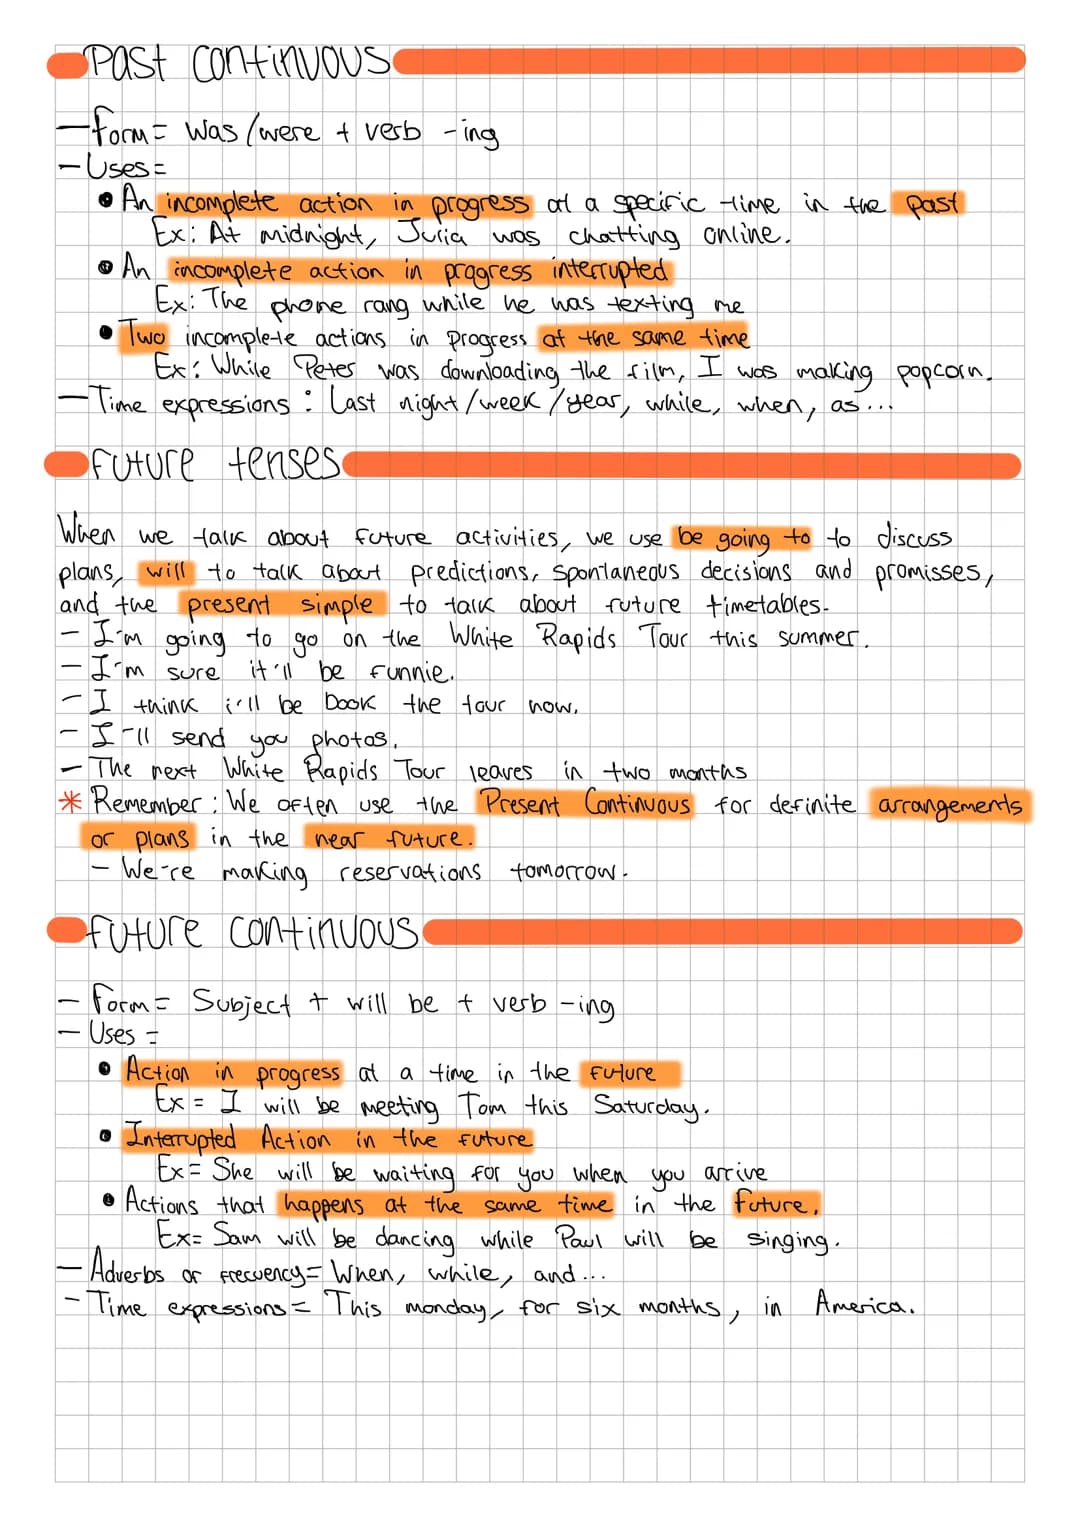 Past continuous
- Form = was/were + verb -ing
- Uses =
• An incomplete action in progress at a specific time in the past
Ex: At midnight, Julia was chatting online.
• An incomplete action in progress interrupted
Ex: The phone rang while he was texting me
• Two incomplete actions in progress at the same time
Ex: While Peter was downloading the film, I was making popcorn.
- Time expressions: Last night/week/year, while, when, as...
Future tenses
When we talk about future activities, we use be going to to discuss
plans, will to talk about predictions, spontaneous decisions and promisses,
and the present simple to talk about future timetables.
- I'm going to go on the White Rapids Tour this summer.
- I'm sure it'll be funnie.
- I think i'll be book the tour now.
- I'll send you photos.
- The next White Rapids Tour leaves in two months
* Remember: We often use the Present Continuous for definite arrangements
or plans in the near future.
- We're making reservations tomorrow.
Future continuous
- Form = Subject + will be + verb -ing
- Uses =
• Action in progress at a time in the future
Ex = I will be meeting Tom this Saturday.
• Interrupted Action in the future
Ex = She will be waiting for you when you arrive
• Actions that happens at the same time in the future.
Ex = Sam will be dancing while Paul will be singing.
- Adverbs of frecuency = When, while, and...
- Time expressions = This monday, for six months, in America.